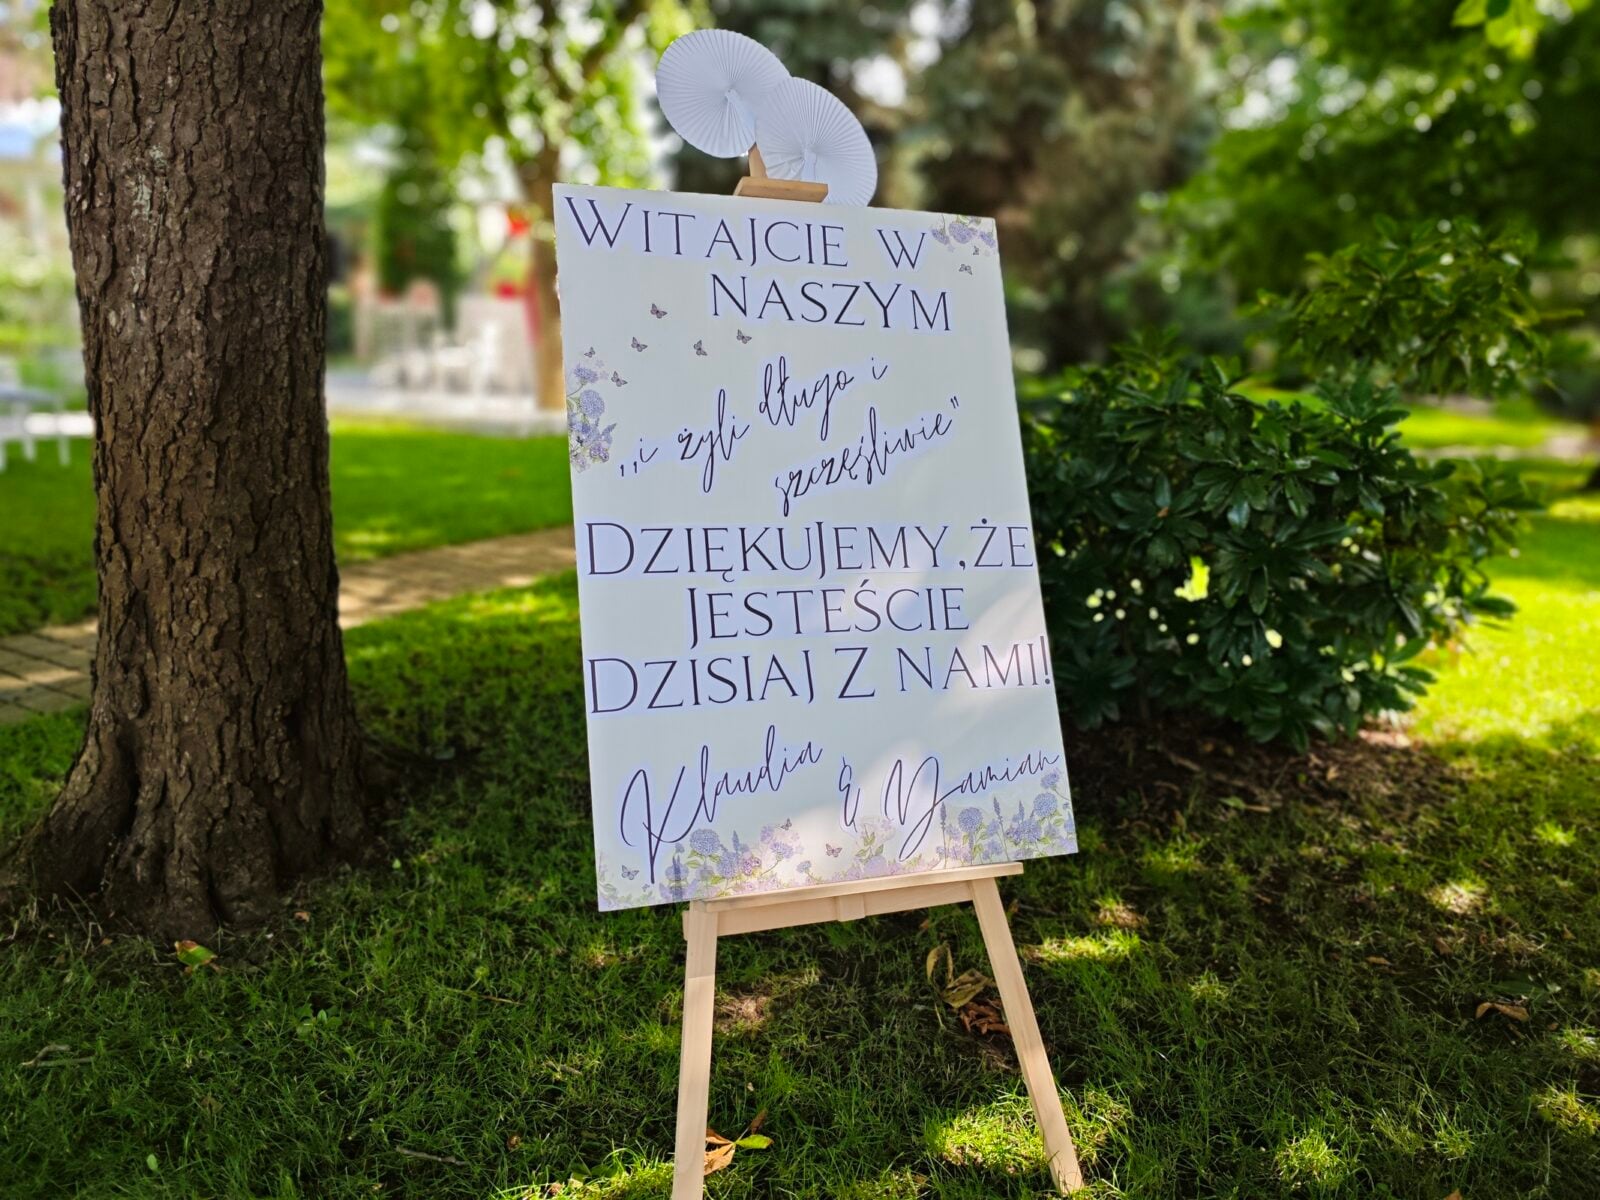 WITAJCIE W
NASZYM
,,i żyli długo i
szczęśliwie"
DZIĘKUJEMY ,ŻE
JESTEŚCIE
DZISIAJ Z NAMI!
Klaudia & Damian